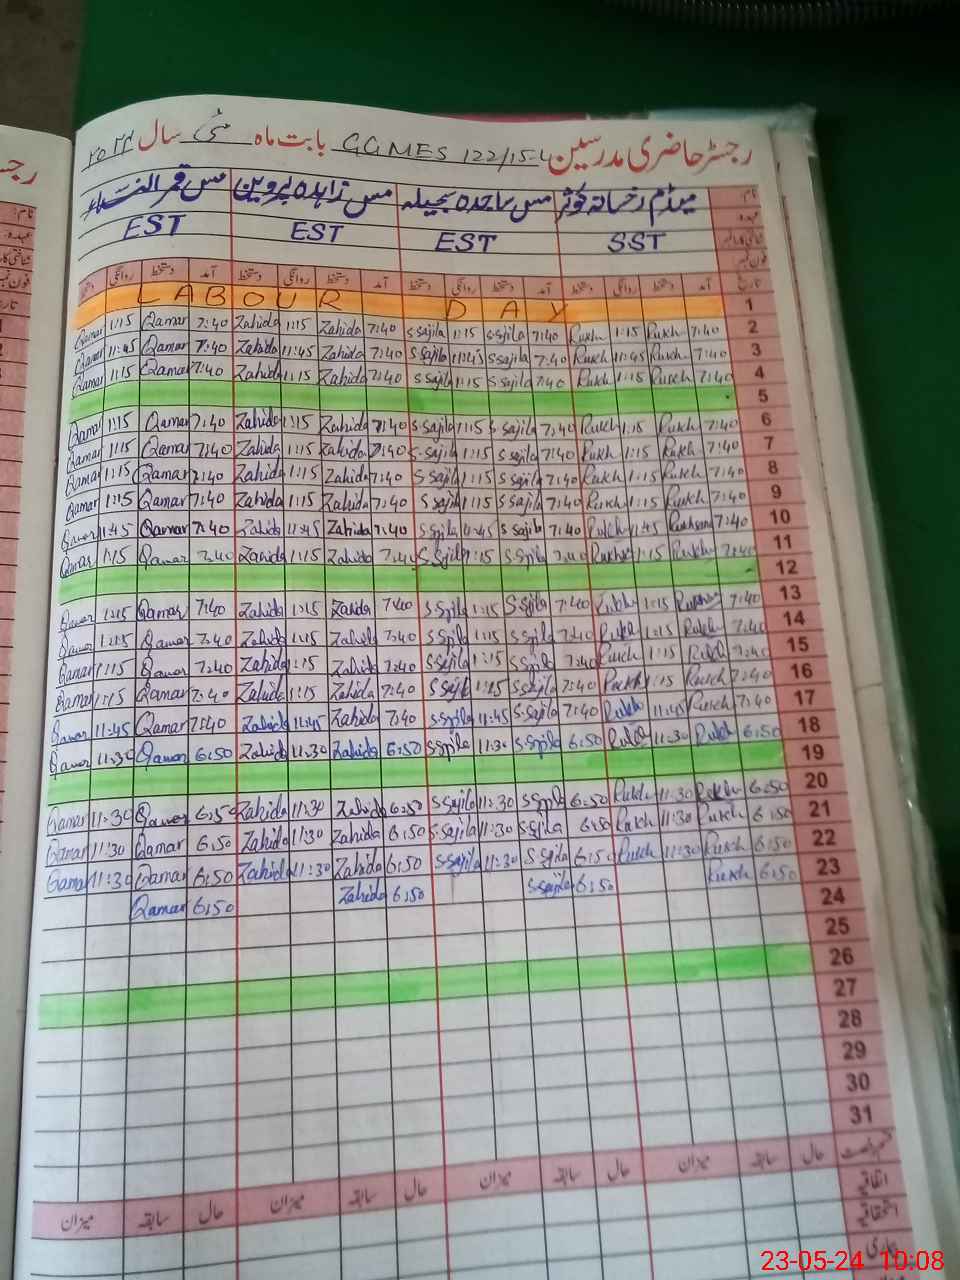 رجسٹر حاضری مدرسین GGMES 122/15-L بابت ماہ مئی سال ۲۰۲۴
نام: میڈم رخسانہ کوثر مس ساجدہ سجیلہ مس زاہدہ پروین مس قمر النساء
عہدہ SST EST EST EST
شناختی کارڈ نمبر
فون نمبر
تاریخ آمد دستخط روانگی دستخط آمد دستخط روانگی دستخط آمد دستخط روانگی دستخط آمد دستخط روانگی دستخط
LABOUR DAY 1
Qamar 1:15 Qamar 7:40 Zahida 1:15 Zahida 7:40 S.Sajila 1:15 S.Sajila 7:40 Rukh 1:15 Rukh 7:40 2
Qamar 11:45 Qamar 7:40 Zahida 11:45 Zahida 7:40 S.Sajila 11:45 S.Sajila 7:40 Rukh 11:45 Rukh 7:40 3
Qamar 1:15 Qamar 7:40 Zahida 1:15 Zahida 7:40 S.Sajila 1:15 S.Sajila 7:40 Rukh 1:15 Rukh 7:40 4
5
Qamar 1:15 Qamar 7:40 Zahida 1:15 Zahida 7:40 S.Sajila 1:15 S.Sajila 7:40 Rukh 1:15 Rukh 7:40 6
Qamar 1:15 Qamar 7:40 Zahida 1:15 Zahida 7:40 S.Sajila 1:15 S.Sajila 7:40 Rukh 1:15 Rukh 7:40 7
Qamar 1:15 Qamar 7:40 Zahida 1:15 Zahida 7:40 S.Sajila 1:15 S.Sajila 7:40 Rukh 1:15 Rukh 7:40 8
Qamar 1:15 Qamar 7:40 Zahida 1:15 Zahida 7:40 S.Sajila 1:15 S.Sajila 7:40 Rukh 1:15 Rukh 7:40 9
Qamar 11:45 Qamar 7:40 Zahida 11:45 Zahida 7:40 S.Sajila 11:45 S.Sajila 7:40 Rukh 11:45 7:40 10
Qamar 1:15 Qamar 7:40 Zahida 1:15 Zahida 7:40 S.Sajila 1:15 S.Sajila 7:40 1:15 Rukh 7:40 11
12
Qamar 1:15 Qamar 7:40 Zahida 1:15 Zahida 7:40 S.Sajila 1:15 S.Sajila 7:40 Rukh 1:15 7:40 13
Qamar 1:15 Qamar 7:40 Zahida 1:15 Zahida 7:40 S.Sajila 1:15 S.Sajila 7:40 Rukh 1:15 Rukh 7:40 14
Qamar 1:15 Qamar 7:40 Zahida 1:15 Zahida 7:40 S.Sajila 1:15 S.Sajila 7:40 Rukh 1:15 Rukh 7:40 15
Qamar 1:15 Qamar 7:40 Zahida 1:15 Zahida 7:40 S.Sajila 1:15 S.Sajila 7:40 Rukh 1:15 Rukh 7:40 16
Qamar 11:45 Qamar 7:40 Zahida 11:45 Zahida 7:40 S.Sajila 11:45 S.Sajila 7:40 Rukh 11:45 Rukh 7:40 17
Qamar 11:30 Qamar 6:50 Zahida 11:30 Zahida 6:50 S.Sajila 11:30 S.Sajila 6:50 Rukh 11:30 Rukh 6:50 18
19
Qamar 11:30 Qamar 6:50 Zahida 11:30 Zahida 6:50 S.Sajila 11:30 S.Sajila 6:50 Rukh 11:30 Rukh 6:50 20
Qamar 11:30 Qamar 6:50 Zahida 11:30 Zahida 6:50 S.Sajila 11:30 S.Sajila 6:50 Rukh 11:30 Rukh 6:50 21
Qamar 11:30 Qamar 6:50 Zahida 11:30 Zahida 6:50 S.Sajila 11:30 S.Sajila 6:50 Rukh 11:30 Rukh 6:50 22
Qamar 6:50 Zahida 6:50 S.Sajila 6:50 Rukh 6:50 23
24
25
26
27
28
29
30
31
قسم رخصت حال سابقہ میزان حال سابقہ میزان حال سابقہ میزان حال سابقہ میزان
اتفاقیہ
استحقاقیہ
بیماری
23-05-24 10:08